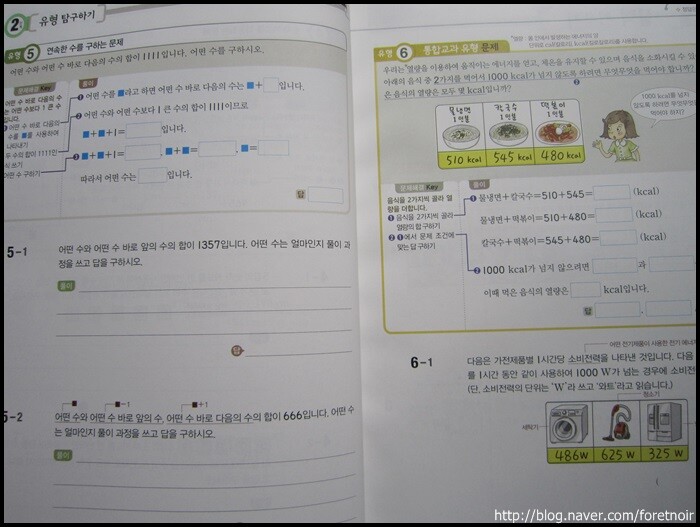 2
유형 탐구하기
유형 5 연속한 수를 구하는 문제
어떤 수와 어떤 수 바로 다음의 수의 합이 1111입니다. 어떤 수를 구하시오.
문제해결 Key
어떤 수 바로 다음의 수
는 어떤 수보다 1 큰 수
입니다.
❶ 어떤 수 바로 다음의
수를 ■를 사용하여
나타내기
두 수의 합이 1111인
식 쓰기
어떤 수 구하기
풀이
❶ 어떤 수를 ■라고 하면 어떤 수 바로 다음의 수는 ■+ 입니다.
❷ 어떤 수와 어떤 수보다 1 큰 수의 합이 1111이므로
■+■+1= 입니다.
❸ ■+■+1= , ■+■= , ■=
따라서 어떤 수는 입니다.
답
5-1 어떤 수와 어떤 수 바로 앞의 수의 합이 1357입니다. 어떤 수는 얼마인지 풀이 과
정을 쓰고 답을 구하시오.
풀이
답
■ ■-1 ■+1
5-2 어떤 수와 어떤 수 바로 앞의 수, 어떤 수 바로 다음의 수의 합이 666입니다. 어떤 수
는 얼마인지 풀이 과정을 쓰고 답을 구하시오.
풀이
유형 6 통합교과 유형 문제
우리는 열량을 이용하여 움직이는 에너지를 얻고, 체온을 유지할 수 있으며 음식을 소화시킬 수 있
아래의 음식 중 2가지를 먹어서 1000 kcal가 넘지 않도록 하려면 무엇무엇을 먹어야 합니까?
은 음식의 열량은 모두 몇 kcal입니까?
물냉면 1인분
칼국수 1인분
떡볶이 1인분
510 kcal 545 kcal 480 kcal
1000 kcal를 넘지
않도록 하려면 무엇무엇
먹어야 하지?
문제해결 Key
음식을 2가지씩 골라 열
량을 더합니다.
❶ 음식을 2가지씩 골라
열량의 합 구하기
❷ ❶에서 문제 조건에
맞는 답 구하기
풀이
❶ 물냉면+칼국수=510+545= (kcal)
물냉면+떡볶이=510+480= (kcal)
칼국수+떡볶이=545+480= (kcal)
❷ 1000 kcal가 넘지 않으려면 과
이때 먹은 음식의 열량은 kcal입니다.
답 ,
어떤 전기제품이 사용한 전기 에너지
6-1 다음은 가전제품별 1시간당 소비전력을 나타낸 것입니다. 다음
를 1시간 동안 같이 사용하여 1000 W가 넘는 경우에 소비전
(단, 소비전력의 단위는 'W'라 쓰고 '와트'라고 읽습니다.)
청소기
세탁기
486W 625W 325W
http://blog.naver.com/foretnoir